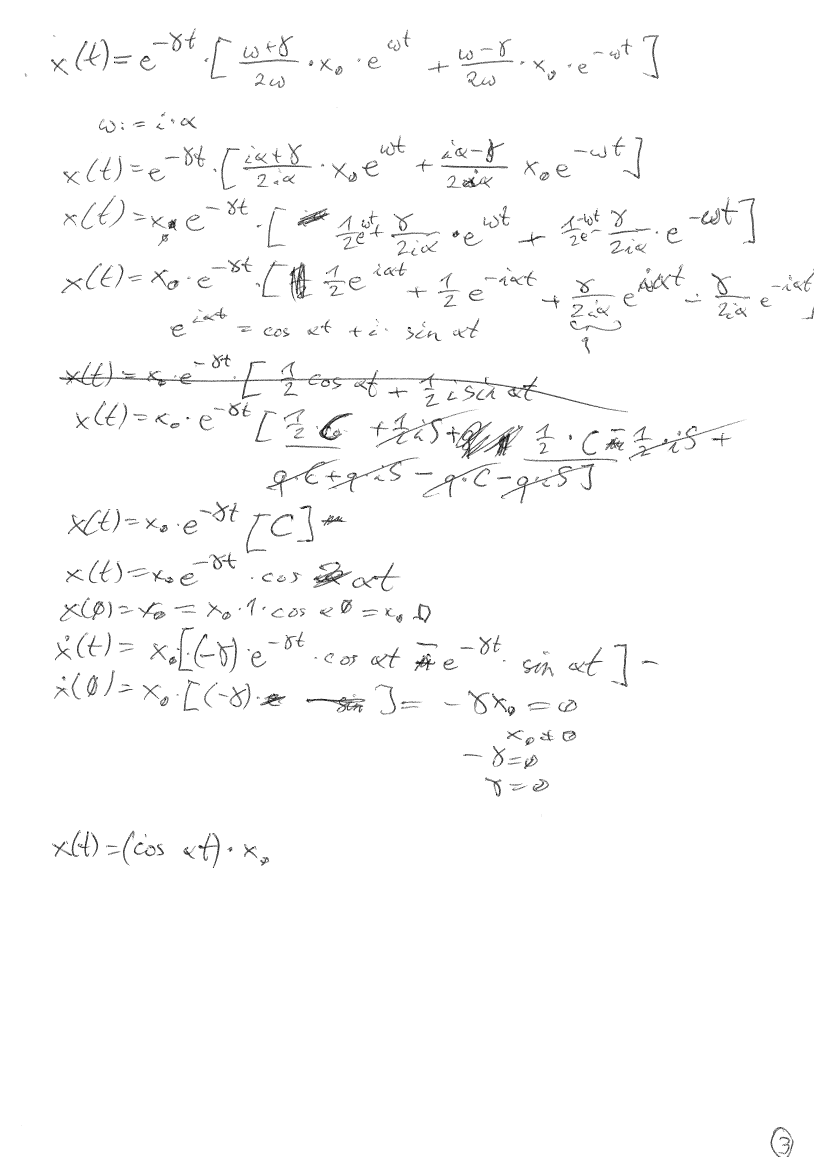 x(t) = e^{-γt} · [ (ω+γ)/(2ω) · x₀ · e^{ωt} + (ω-γ)/(2ω) · x₀ · e^{-ωt} ]
ω := i·α
x(t) = e^{-γt} · [ (iα+γ)/(2iα) · x₀ e^{ωt} + (iα-γ)/(2iα) x₀ e^{-ωt} ]
x(t) = x₀ e^{-γt} · [ 1/2 e^{ωt} + γ/(2iα) · e^{ωt} + 1/2 e^{-ωt} - γ/(2iα) · e^{-ωt} ]
x(t) = x₀ · e^{-γt} · [ 1/2 e^{iαt} + 1/2 e^{-iαt} + γ/(2iα) e^{iαt} - γ/(2iα) e^{-iαt} ]
q
e^{iαt} = cos αt + i · sin αt
x(t) = x₀ · e^{-γt} · [ 1/2 cos αt + 1/2 i sin αt
x(t) = x₀ · e^{-γt} [ 1/2 · C + 1/2 iS + 1/2 · C - 1/2 · iS +
q·C + q·iS - q·C - q iS ]
x(t) = x₀ · e^{-γt} [C]
x(t) = x₀ e^{-γt} · cos αt
x(0) = x₀ = x₀ · 1 · cos α0 = x₀
ẋ(t) = x₀ [(-γ) · e^{-γt} · cos αt - e^{-γt} · sin αt ]
ẋ(0) = x₀ · [(-γ) · ] = -γx₀ = 0
x₀ ≠ 0
-γ = 0
γ = 0
x(t) = (cos αt) · x₀
3